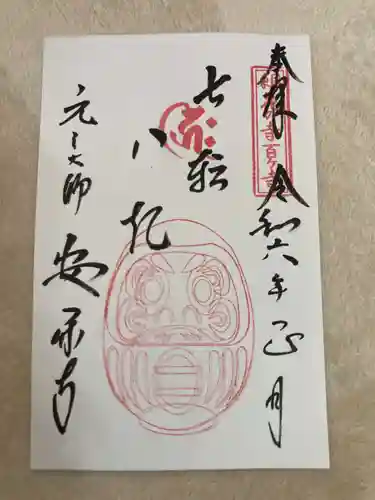 奉拝 令和六年正月
七転
八起
元三大師
安楽寺